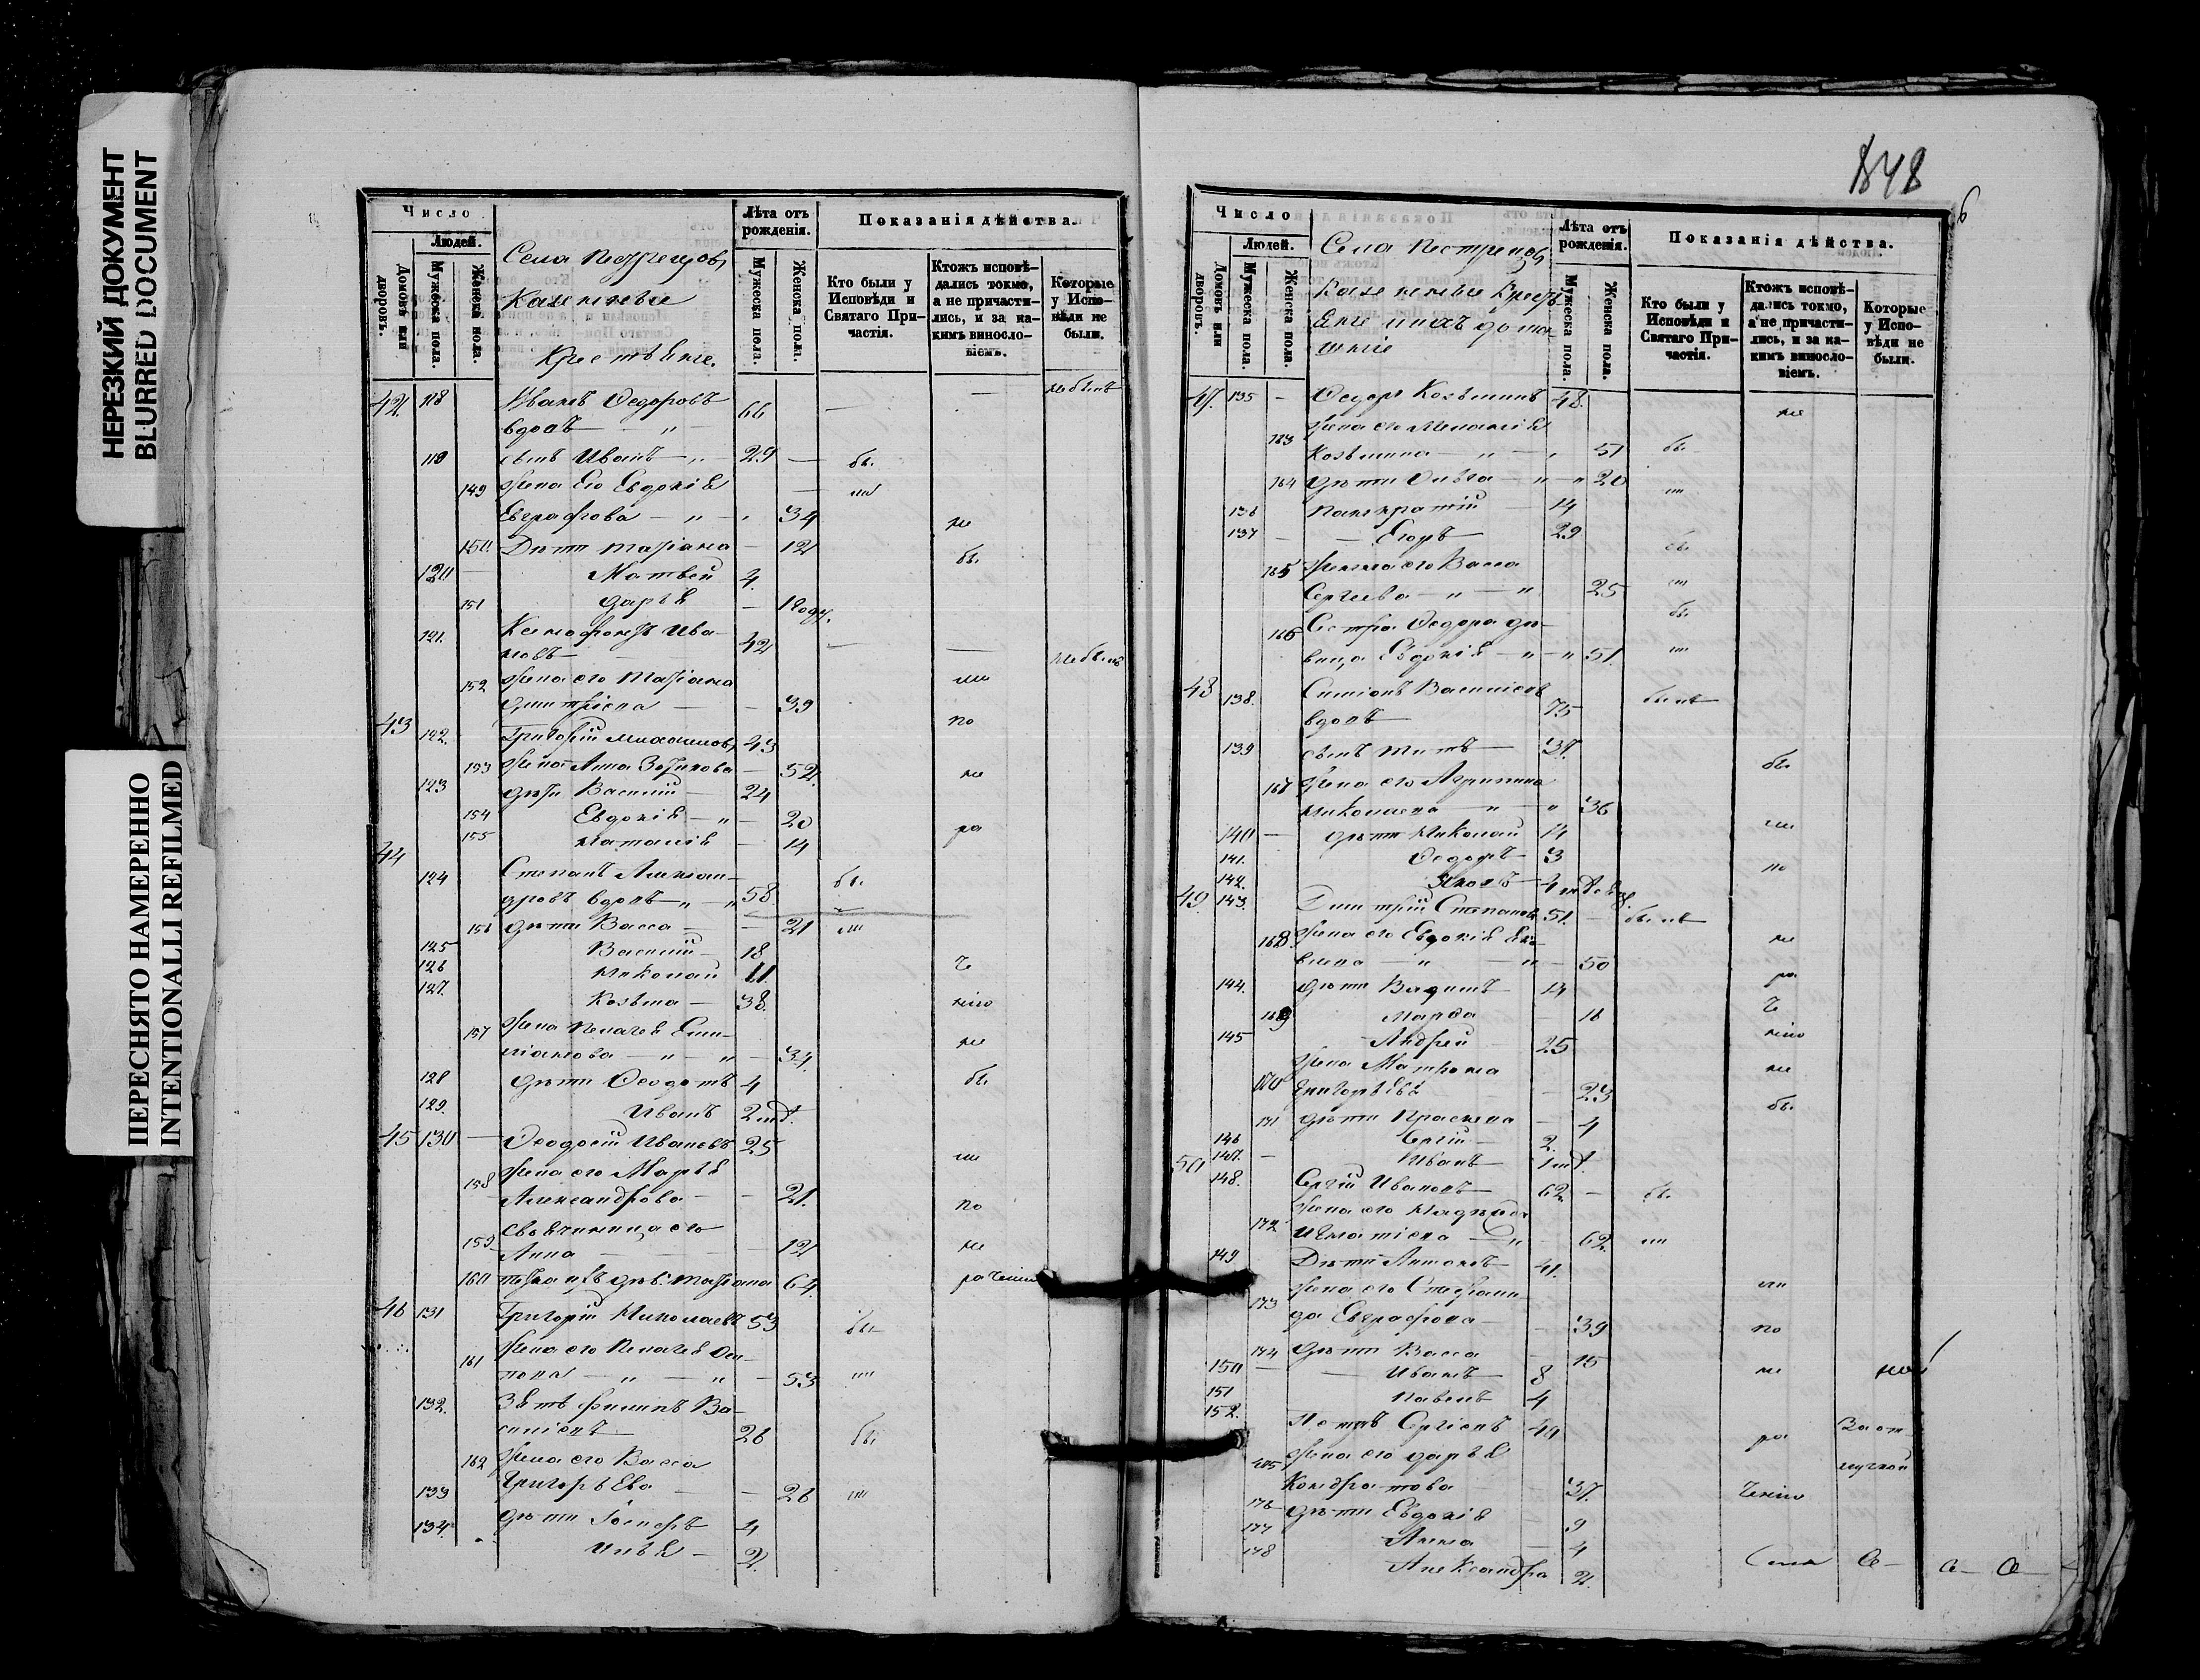 НЕРЕЗКИЙ ДОКУМЕНТ
BLURRED DOCUMENT
ПЕРЕСНЯТО НАМЕРЕННО
INTENTIONALLI REFILMED
Число
Людей.
Домовъ или дворовъ.
Мужеска пола.
Женска пола.
Села
Казенные
Крестьяне.
Лѣта отъ рожденія.
Мужеска пола.
Женска пола.
Показанія дѣйства.
Кто были у Исповѣди и Святаго Причастія.
Ктожъ исповѣдались токмо, а не причастились, и за какимъ винословіемъ.
Которые у Исповѣди не были.
42 118 Иванъ Ѳедоровъ
вдовъ — „ — 66 — — не былъ
119 сынъ Иванъ — „ — 29 — бы
149 Жена его Евдокія — ли
Евграфова — „ — 34 не
150 Дѣти Татіана — 12 бы
120 Матвей 4
151 Дарья — 1 году.
121. Ксенофонтъ Ива-
новъ — 42 — — не былъ
152 Жена его Татіана ли
Димитріева — 39
43 122. Григорій Михаиловъ 43 по
153 Жена Анна — 52 не
123 дѣти Василій — 24
154 Евдокія — „ — 20 ра
155 Наталія — 14
44 124 Степанъ Алексан-
дровъ вдовъ — „ — 58 бы
156 дѣти Васса — 21 ли
125 Василій — 18
126 Николай 11 че
127. Козьма — 38 нію
157 Жена Пелагея Еми-
ліанова — „ — „ — 34 не
128 дѣти Ѳеодотъ 4 бы
129. Иванъ 2
45 130 — Ѳеодосій Ивановъ 25 ли
158 Жена его Марья
Александрова — 21. по
159 Свояченица его
Анна — 12 не
160 Татіана 64. раченію
46 131 Григорій Николаевъ 53 бы
161 Жена его Пелагея
— „ — „ — 53 ли
132. Зять Филипъ Ва-
силіевъ 26 бы
162 Жена его Васса
133 Григорьева — 26 ли
134. дѣти 4
Илья — 2.
848
6
Число
Людей.
Домовъ или дворовъ.
Мужеска пола.
Женска пола.
Села
Казенные Кресть-
яне
Лѣта отъ рожденія.
Мужеска пола.
Женска пола.
Показанія дѣйства.
Кто были у Исповѣди и Святаго Причастія.
Ктожъ исповѣдались токмо, а не причастились, и за какимъ винословіемъ.
Которые у Исповѣди не были.
47. 135 — Ѳедоръ Козьминъ 48. не
163 Жена его Меланія
Козьмина — „ — 51 бы
164 дѣти Ольга — „ — „ 20 ли
136 Панкратій — 14
137 — — Егоръ 29 бы
165 Жена его Васса
Сергеева — „ — „ 25 ли
166 Сестра Ѳедора дѣ- бы
вица Евдокія — „ — „ 51. ли
48 138. Симіонъ Василіевъ
вдовъ — 75 былъ
139 сынъ Титъ — 37. бы
167 Жена его Агрипина
Николаева — „ — „ 36
140 — дѣти Николай 14 ли
141. Ѳедоръ — 3
142. Яковъ — по
49. 143. Димитрій Степановъ 51. — былъ
168 Жена его Евдокія Яко-
влева — „ — „ — 50 не
144. дѣти 14 ра
169 Марѳа — 16 че
145 Андрей 25 нію
170 Жена Матрона не
Григорьева — 23
171 дѣти Праскева — 4 бы
146 Сергій — 2.
147. — Иванъ — 1
50 148. Сергій Ивановъ — 62 — бы
172 Жена его
Игнатіева — „ — 62. ли
149 Дѣти 41.
173 Жена его Стефани- ли
да Евграфова — 39 по
174 дѣти Васса — 15
150 — — Иванъ — 8 не
151 Павелъ 4
152. Петръ Сергіевъ 40 ра За от-
Жена его Дарья лучкой
Кондратова — 37. ченію
176 дѣти Евдокія — 9
177 Анна — 4
178 Александра 2.